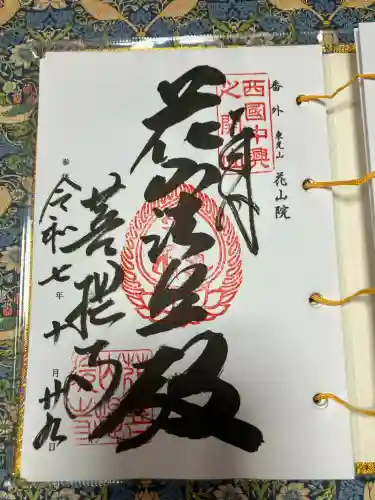 番外 東光山 花山院
西國中興
之開
奉拝
花山法皇殿
菩提寺
令和七年十月廿九日